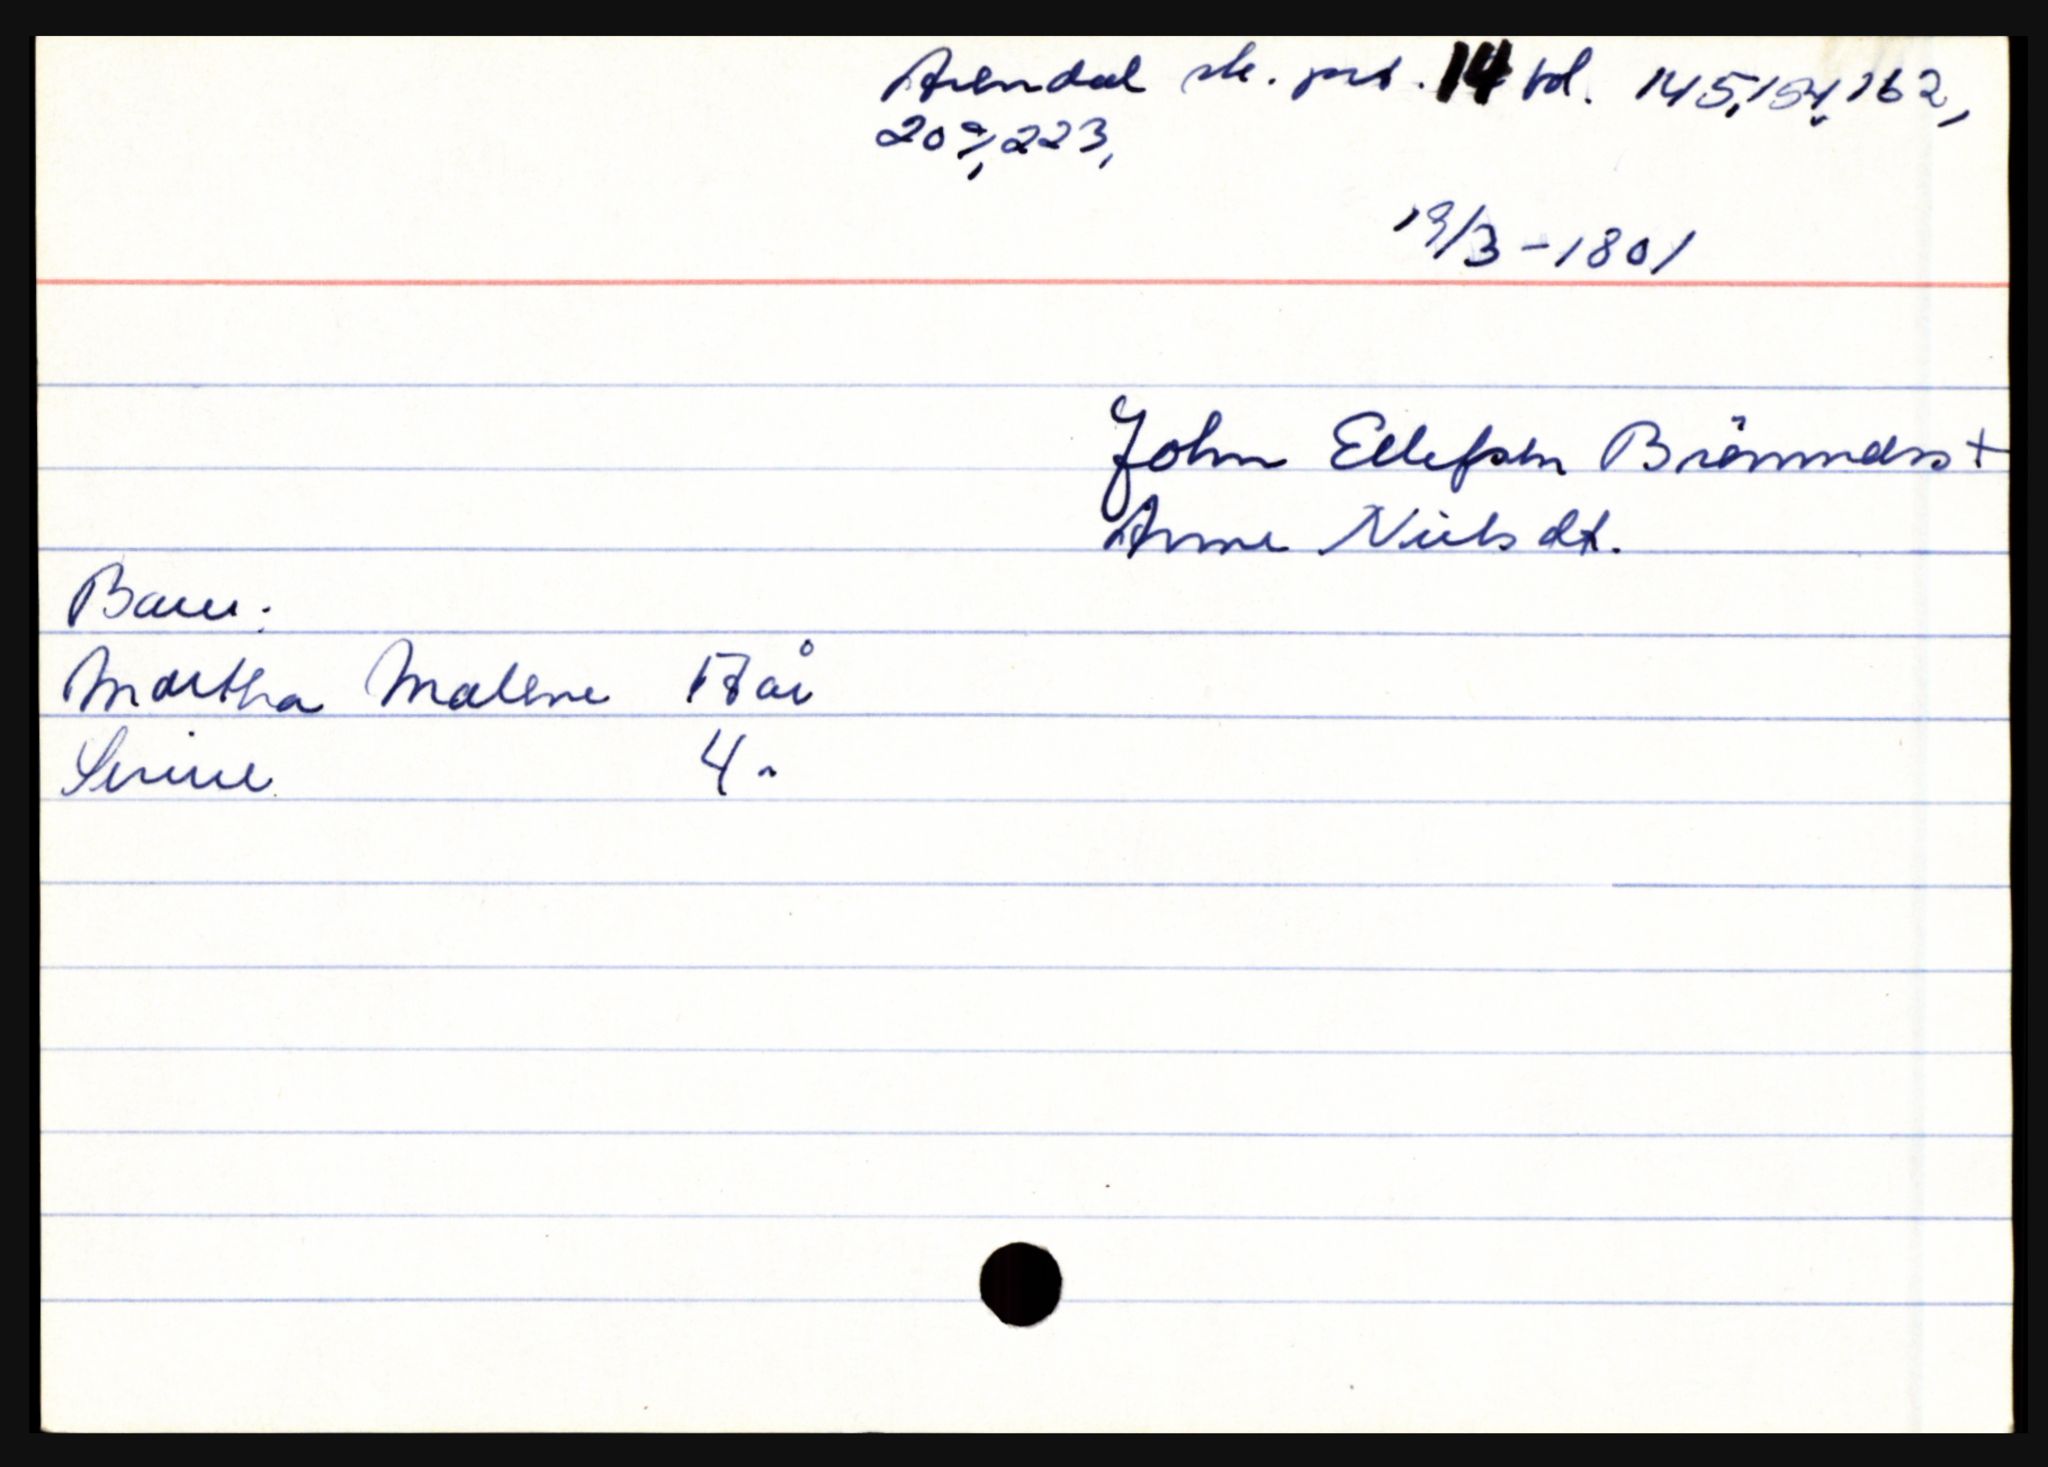 Arendal sk. prot. 14 fol. 145, 154, 162,
209, 223,
19/3 - 1801
John Ellefsen Brömmdss +
Anne Nielsdt.
Barn:
Martha Malene 17 år
Serine 4 "